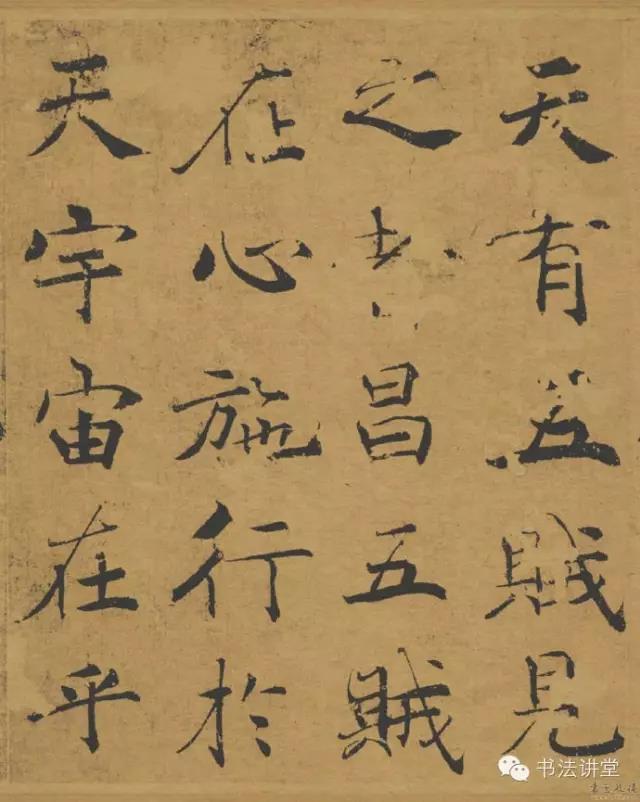 天有五賊見
之者昌五賊
在心施行於
天宇宙在乎
书法讲堂